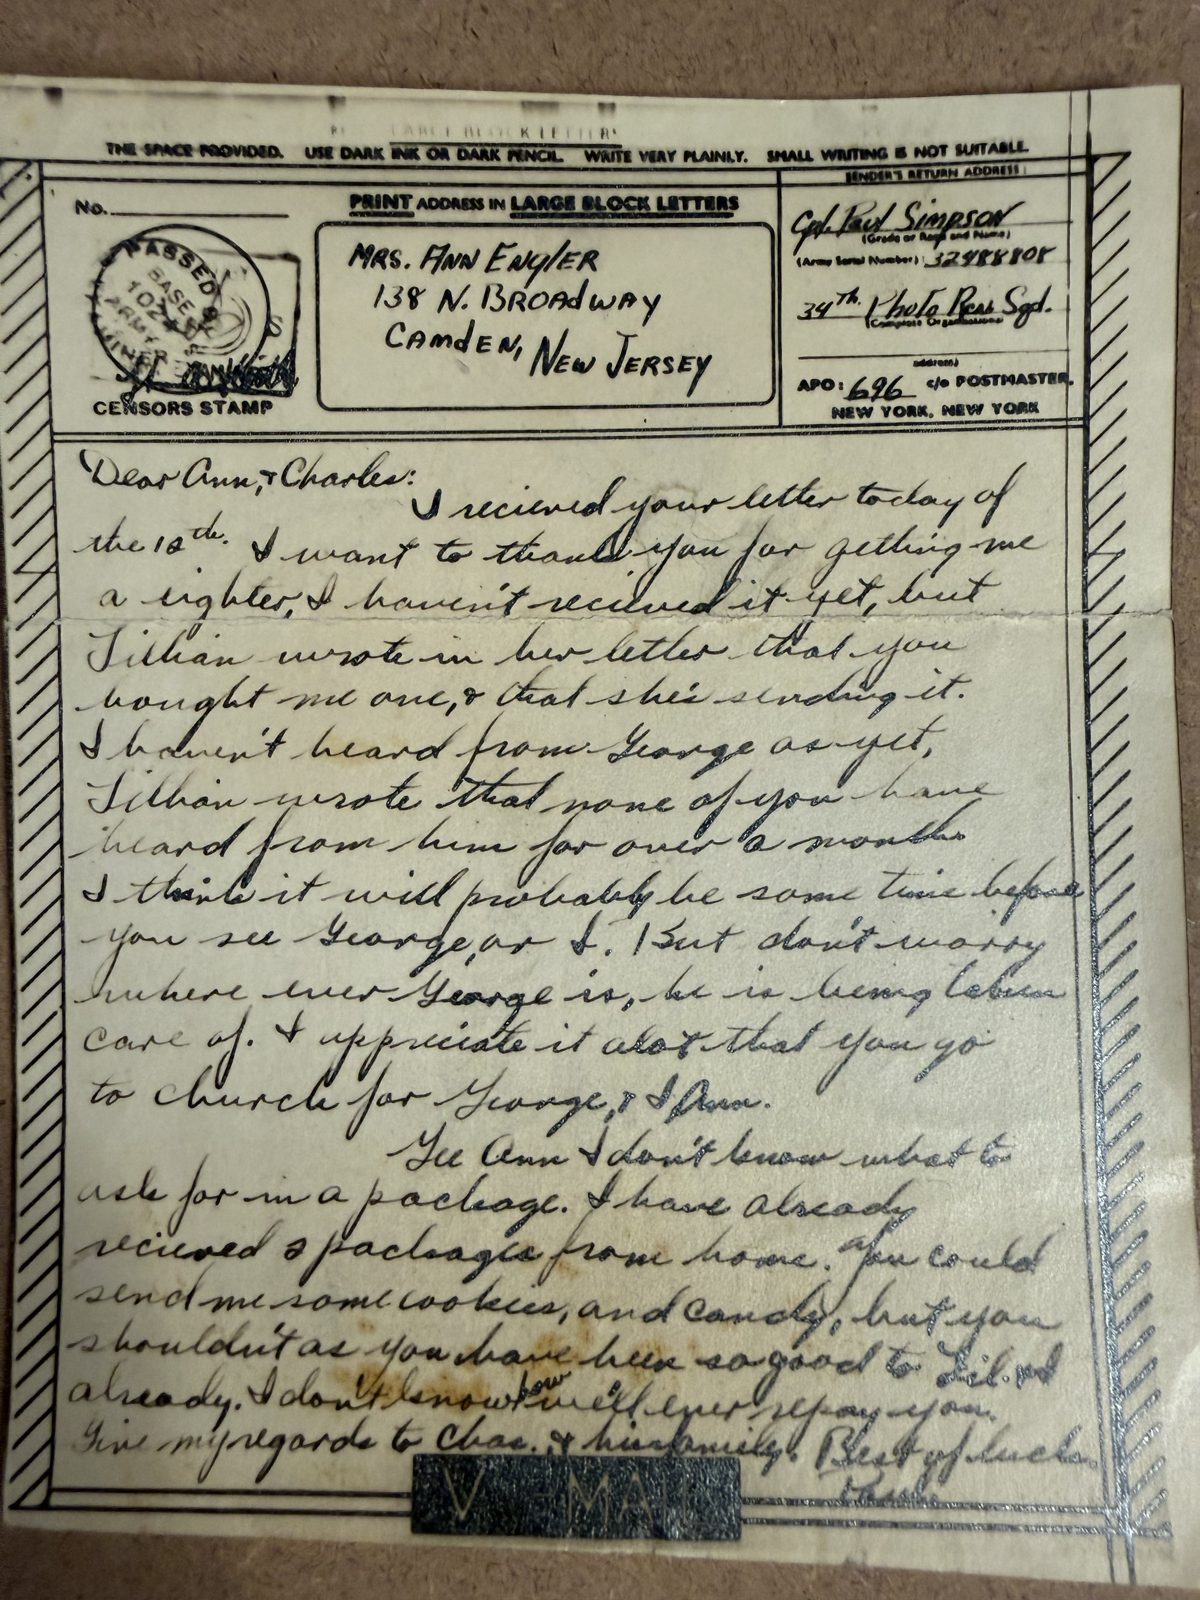 LARGE BLOCK LETTERS
THE SPACE PROVIDED. USE DARK INK OR DARK PENCIL. WRITE VERY PLAINLY. SMALL WRITING IS NOT SUITABLE.
No.
PASSED BY
BASE
ARMY
EXAMINER
CENSORS STAMP
PRINT ADDRESS IN LARGE BLOCK LETTERS
MRS. ANN ENGLER
138 N. BROADWAY
CAMDEN, NEW JERSEY
SENDER'S RETURN ADDRESS
Cpl. Paul SIMPSON
(Grade or Rank and Name)
(Army Serial Number) 32488808
34TH. Photo Recn Sqd.
(Complete Organization)
address)
APO: 696 c/o POSTMASTER,
NEW YORK, NEW YORK
Dear Ann, & Charles:
I recieved your letter today of
the 12th. I want to thank you for getting me
a lighter, I haven't recieved it yet, but
Lillian wrote in her letter that you
bought me one, & that she's sending it.
I haven't heard from George as yet,
Lillian wrote that none of you have
heard from him for over a month.
I think it will probably be some time before
you see George, or I. But don't worry
where ever George is, he is being taken
care of. I appreciate it alot that you go
to church for George, & I Ann.
Gee Ann I don't know what to
ask for in a package. I have already
recieved packages from home. You could
send me some cookies, and candy, but you
shouldn't as you have been so good to Lil. & I
already. I don't know how we'll ever repay you.
Give my regards to Chas. & his family. Best of luck
Paul
V-MAIL